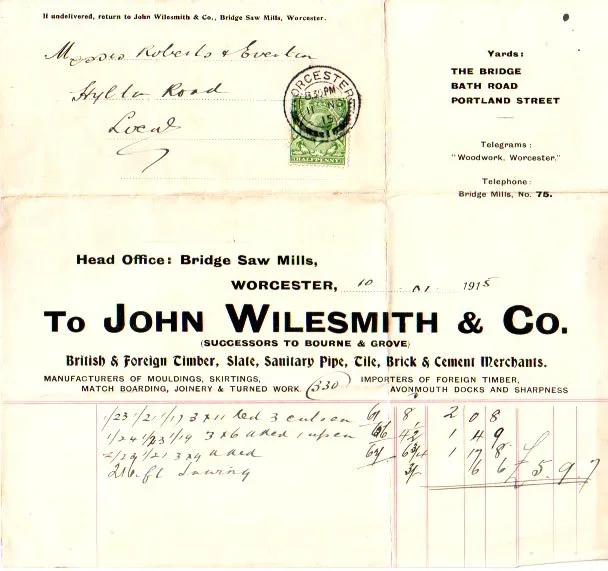 If undelivered, return to John Wilesmith & Co., Bridge Saw Mills, Worcester.
Messrs Roberts &
Road
Local
WORCESTER
8.30 PM
11 NO
15
HALFPENNY
Yards:
THE BRIDGE
BATH ROAD
PORTLAND STREET
Telegrams:
"Woodwork, Worcester."
Telephone:
Bridge Mills, No. 75.
Head Office: Bridge Saw Mills,
WORCESTER, 10 1915
TO JOHN WILESMITH & CO.
(SUCCESSORS TO BOURNE & GROVE)
British & Foreign Timber, Slate, Sanitary Pipe, Tile, Brick & Cement Merchants.
MANUFACTURERS OF MOULDINGS, SKIRTINGS,
MATCH BOARDING, JOINERY & TURNED WORK.
330
IMPORTERS OF FOREIGN TIMBER,
AVONMOUTH DOCKS AND SHARPNESS
1/23 1/21 1/17 3 x 11 Red 3 61 8 2 0 8
1/24 1/23 1/19 3 x 6 66 4½ 1 4 9
1/21 3 x 9 6¾ 1 17 8
216 ft Sawing 3/- 6 6 £5. 9. 7